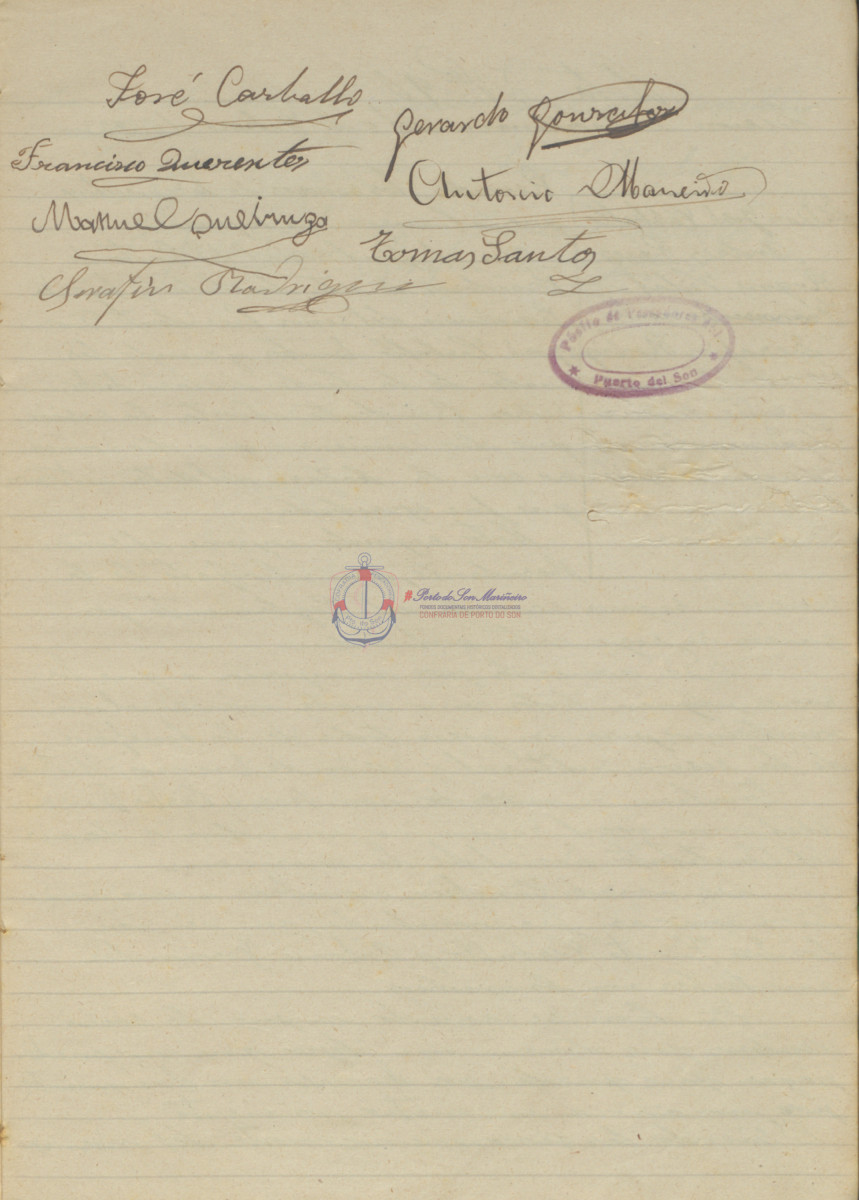 José Carballo
Gerardo González
Francisco Querentes
Antonio Maneiro
Manuel Queiruga
Tomas Santos
Serafin Rodriguez
Pósito de Pescadores
Puerto del Son
#PortodoSonMariñeiro
FONDOS DOCUMENTAIS HISTÓRICOS DIXITALIZADOS
CONFRARÍA DE PORTO DO SON